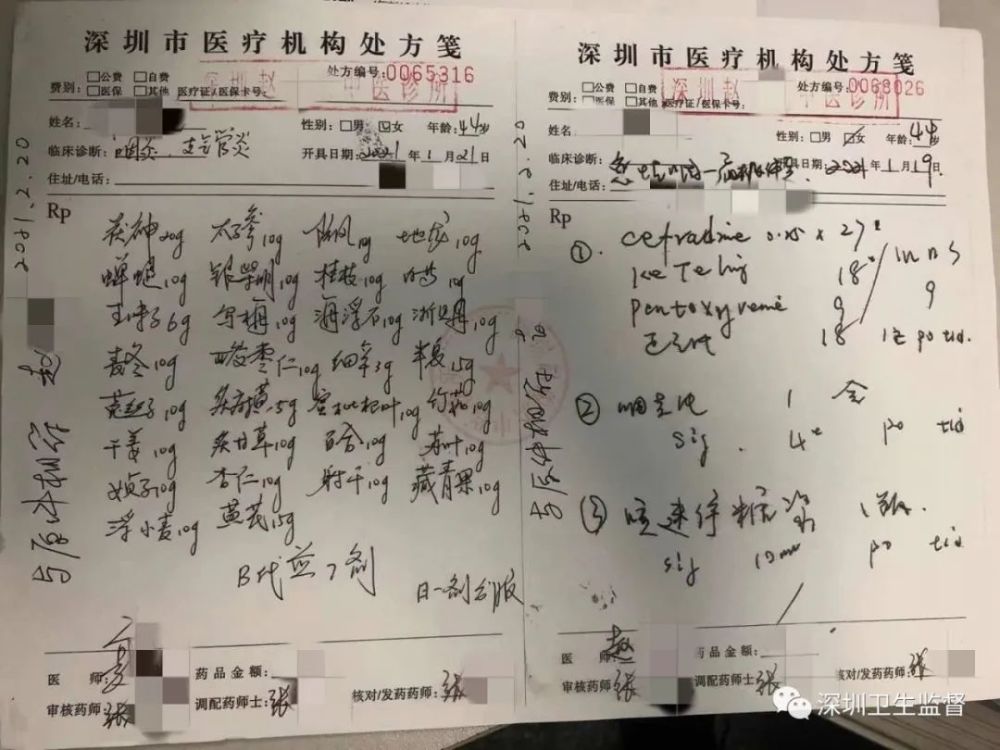 深圳市医疗机构处方笺
处方编号:0065316
费别: □公费 □自费
□医保 □其他 医疗证/医保卡号:
深圳赵 中医诊所
姓名:
性别:□男 ☑女 年龄:44岁
临床诊断: 咽炎、支气管炎
开具日期:2021年1月21日
住址/电话:
Rp
茯神20g 太子参10g 防风10g 地龙10g
蝉蜕10g 银柴胡10g 桂枝10g 白芍10g
五味子6g 乌梅10g 海浮石10g 浙贝母10g
麦冬10g 酸枣仁10g 细辛3g 半夏15g
莱菔子10g 炙麻黄5g 蜜枇杷叶10g 竹茹10g
干姜10g 炙甘草10g 百合10g 苏叶10g
女贞子10g 杏仁10g 射干10g 藏青果10g
浮小麦10g 黄芪15g
日一剂分服
医 师:
药品金额:
审核药师:张
调配药师士:张
核对/发药药师:张
与原件相符 赵
2021.2.20
深圳市医疗机构处方笺
处方编号:0068026
费别: □公费 □自费
□医保 □其他 医疗证/医保卡号:
深圳赵 中医诊所
姓名:
性别:□男 女 年龄:44岁
临床诊断:
开具日期:2021年1月19日
住址/电话:
Rp
① cefradine 0.25 x 27#
18#
pentoxyverine 9 9
18 po tid.
② 1 盒
sig. 4# po tid
③ 咳速停糖浆 1瓶.
sig 10ml po tid
医 师: 赵
药品金额:
审核药师:张
调配药师士:张
核对/发药药师:张
与原件相符
2021.2.20
深圳卫生监督